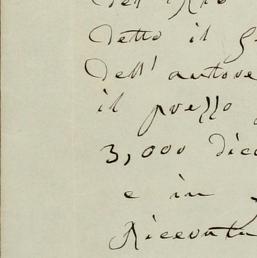 detto il
dell' autore
il prezzo
3,000 dic
e in
Ricevuta